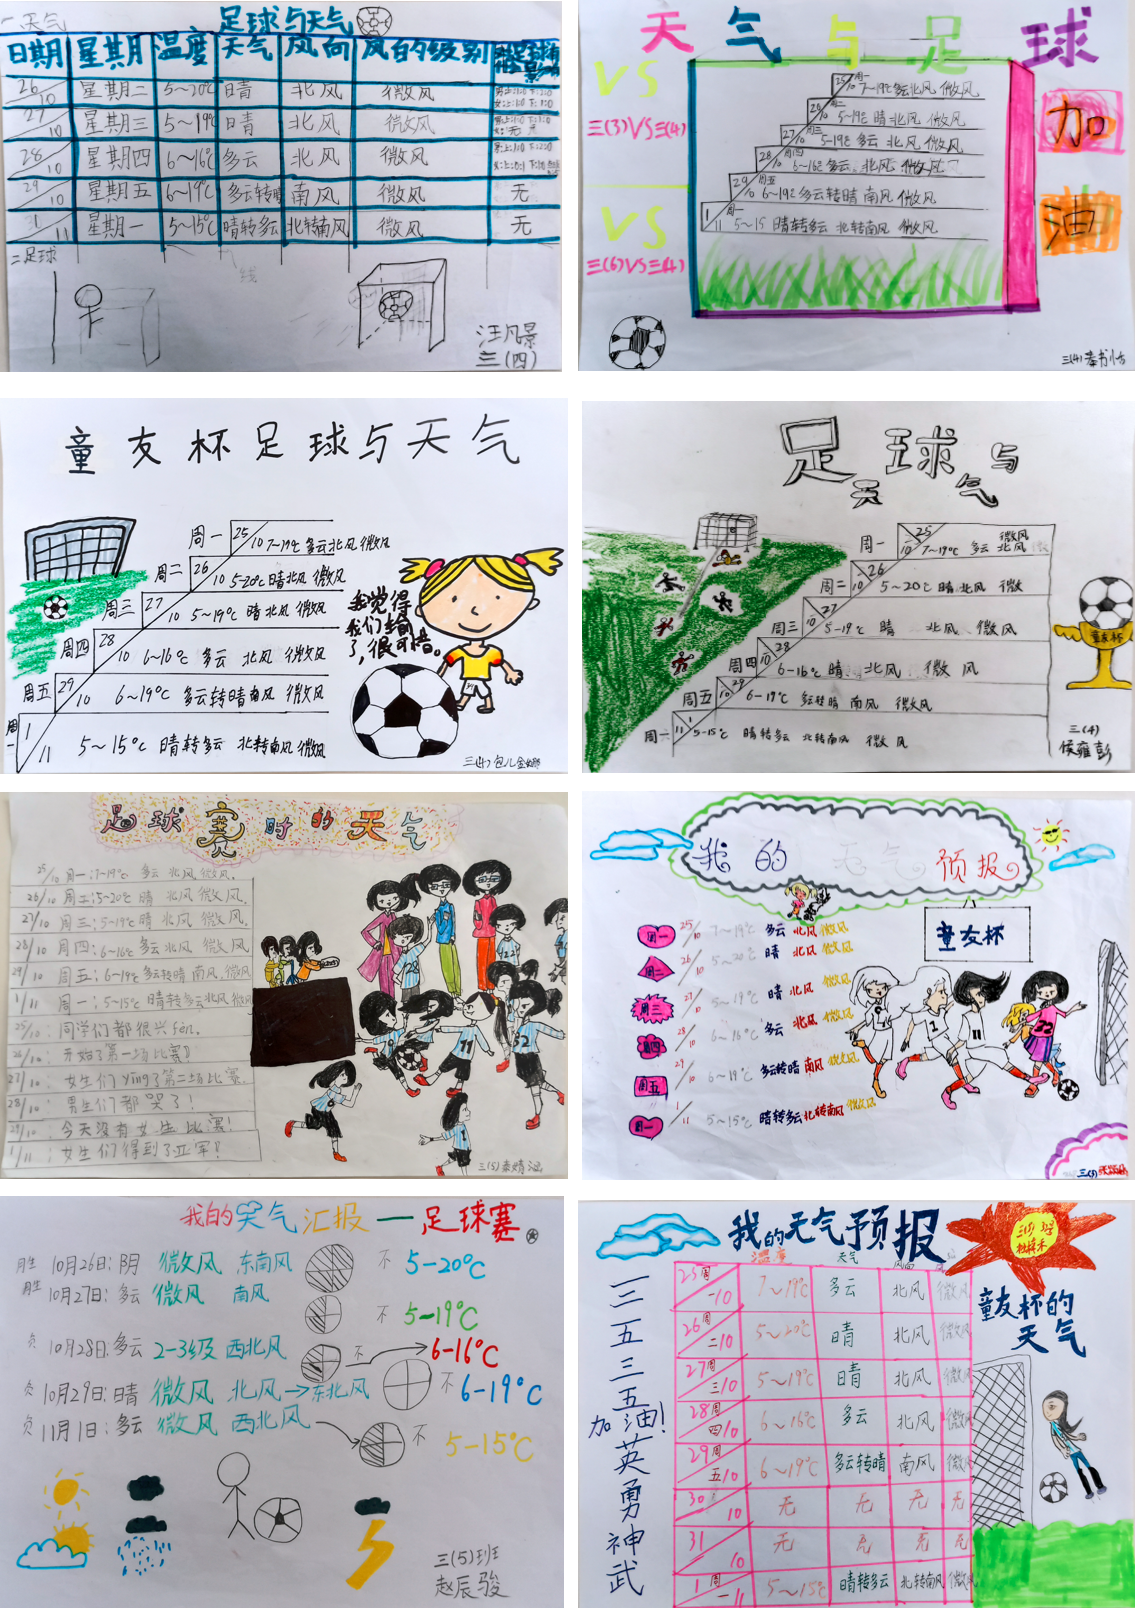 一天气
足球与天气
日期 星期 温度 天气 风向 风的级别
26/10 星期二 5~20℃ 晴 北风 微风
27/10 星期三 5~19℃ 晴 北风 微风
28/10 星期四 6~16℃ 多云 北风 微风
29/10 星期五 6~19℃ 多云转晴 南风 微风 无
1/11 星期一 5~15℃ 晴转多云 北转南风 微风 无
二足球
汪凡景
三(四)
天气与足球
VS
三(3)VS三(4)
VS
三(6)VS三(4)
25/10 周一 7~19℃ 多云 北风 微风
26/10 周二 5~19℃ 晴 北风 微风
27/10 周三 5~19℃ 多云 北风 微风
28/10 周四 6~16℃ 多云 北风 微风
29/10 周五 6~19℃ 多云转晴 南风 微风
1/11 周一 5~15 晴转多云 北转南风 微风
加
油
三(4)
童友杯足球与天气
周一 25/10 7~19℃ 多云 北风 微风
周二 26/10 5~20℃ 晴 北风 微风
周三 27/10 5~19℃ 晴 北风 微风
周四 28/10 6~16℃ 多云 北风 微风
周五 29/10 6~19℃ 多云转晴 南风 微风
周一 1/11 5~15℃ 晴转多云 北转南风 微风
我觉得
我们输
了,很可惜。
三(4)
足球与
天气
周一 25/10 7~19℃ 多云 北风 微风
周二 26/10 5~20℃ 晴 北风 微
周三 27/10 5~19℃ 晴 北风 微风
周四 28/10 6~16℃ 晴 北风 微风
周五 29/10 6~19℃ 多云转晴 南风 微风
周一 1/11 5~15℃ 晴转多云 北转南风 微风
童友杯
三(4)
侯雍彭
足球赛时的天气
25/10 周一:7~19℃ 多云 北风 微风.
26/10 周二:5~20℃ 晴 北风 微风.
27/10 周三:5~19℃ 晴 北风 微风.
28/10 周四:6~16℃ 多云 北风 微风.
29/10 周五:6~19℃ 多云转晴 南风.微风
1/11 周一:5~15℃ 晴转多云北风 微风
25/10:同学们都很兴fèn.
26/10:开始了第一场比赛!
27/10:女生们yíng了第二场比赛.
28/10:男生们都哭了!
29/10:今天没有女生比赛!
1/11:女生们得到了亚军!
三(5)
我的天气预报
周一 25/10 7~19℃ 多云 北风 微风
周二 26/10 5~20℃ 晴 北风 微风
周三 27/10 5~19℃ 晴 北风 微风
周四 28/10 6~16℃ 多云 北风 微风
周五 29/10 6~19℃ 多云转晴 南风 微风
周一 1/11 5~15℃ 晴转多云 北转南风 微风
童友杯
我的天气汇报一足球赛
胜 10月26日:阴 微风 东南风 不 5-20℃
胜 10月27日:多云 微风 南风 不 5-19℃
负 10月28日:多云 2-3级 西北风 不 6-16℃
负 10月29日:晴 微风 北风→东北风 不 6-19℃
负 11月1日:多云 微风 西北风 不 5-15℃
三(5)班
赵辰骏
我的天气预报
温度 天气 风向
25/10 周一 7~19℃ 多云 北风 微风
26/10 周二 5~20℃ 晴 北风 微风
27/10 周三 5~19℃ 晴 北风 微风
28/10 周四 6~16℃ 多云 北风 微风
29/10 周五 6~19℃ 多云转晴 南风 微风
30/10 无 无 无 无
31/10 无 无 无 无
1/11 周一 5~15℃ 晴转多云 北转南风 微风
三五三五
加油!
英勇神武
童友杯的
天气